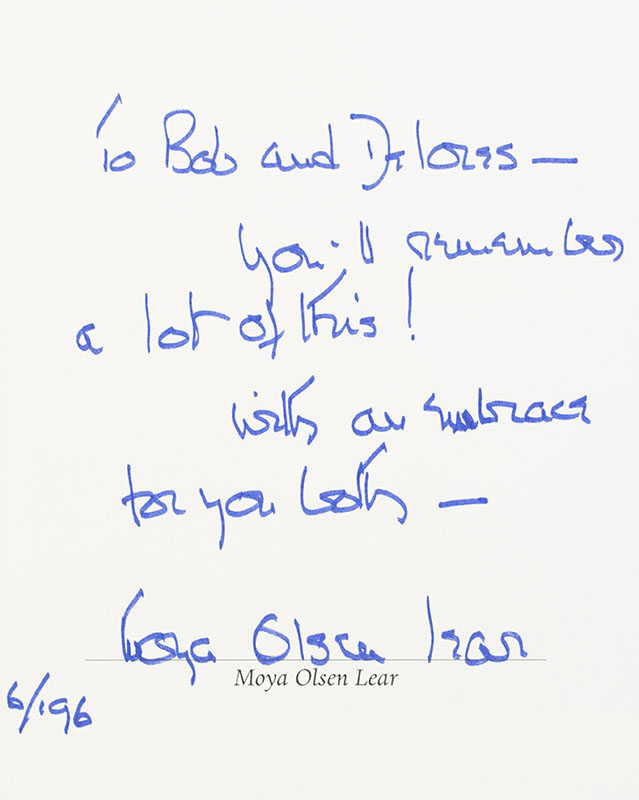 To Bob and Delores —
you'll remember
a lot of this!
with an embrace
for you both —
Moya Olsen Lear
Moya Olsen Lear
6/196